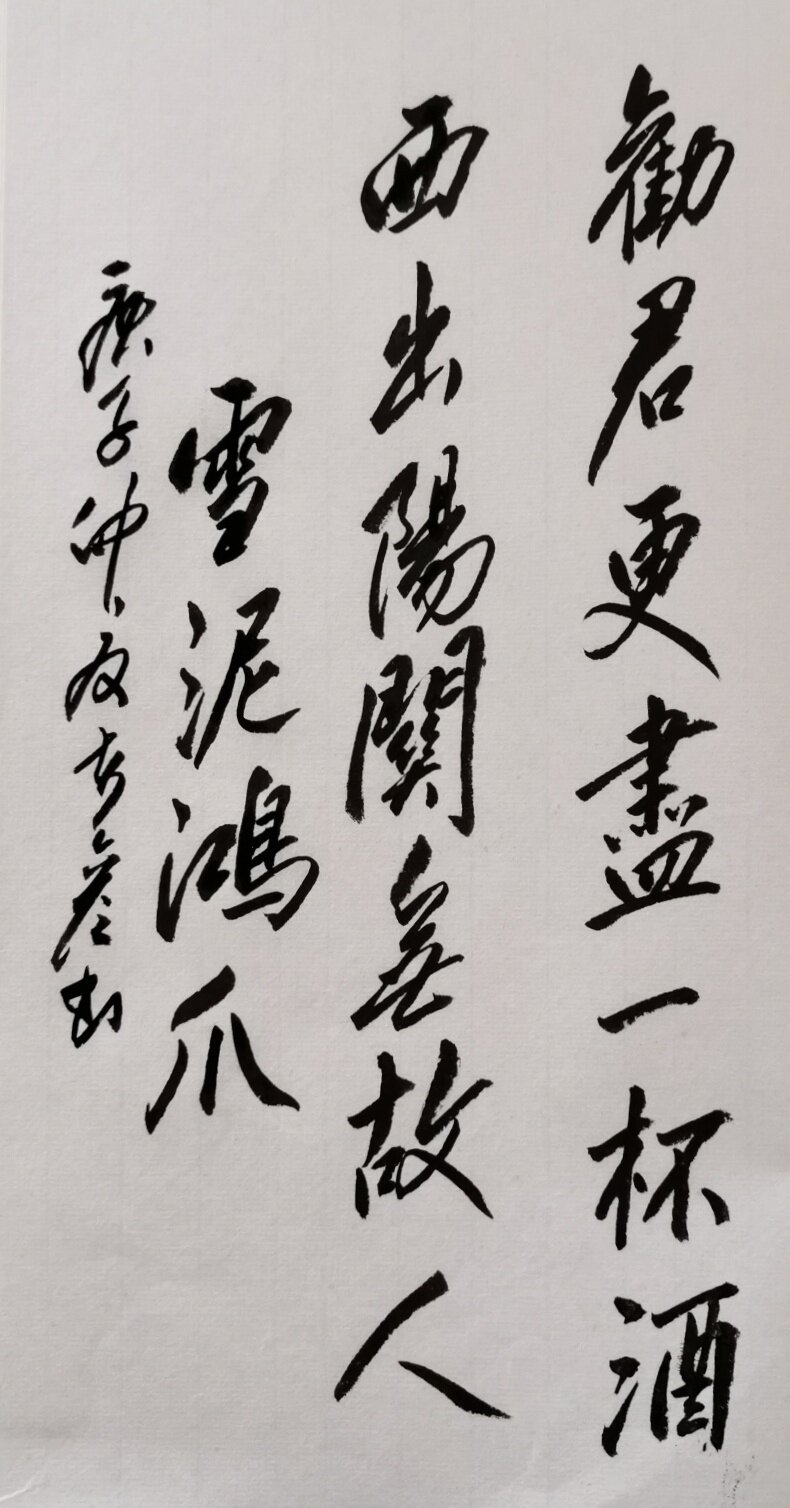 勸君更盡一杯酒
西出陽關無故人
雪泥鴻爪
庚子仲夏吉詹書